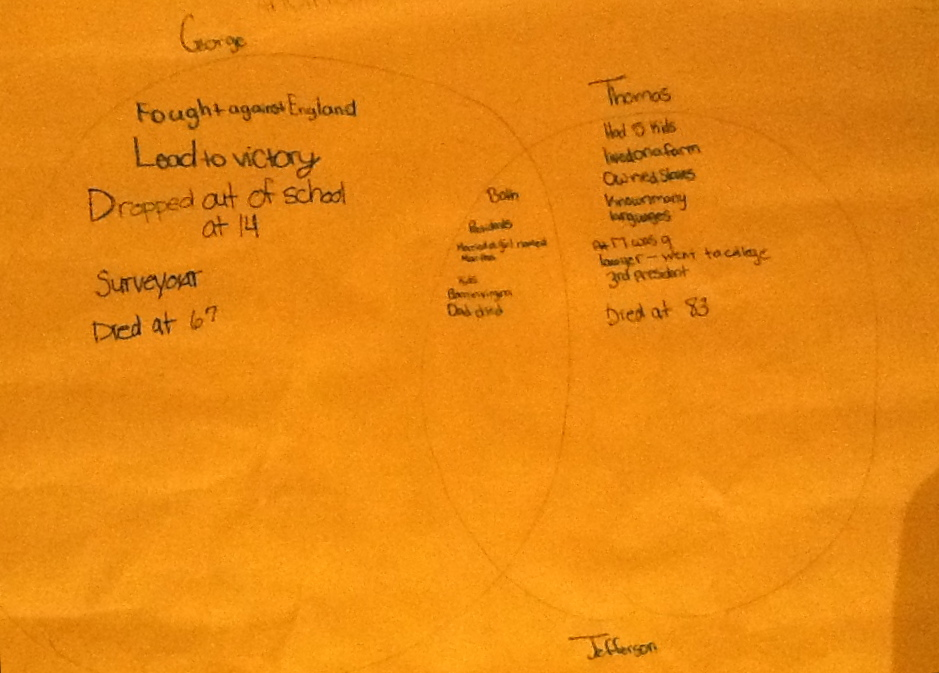 George
Fought against England
Lead to victory
Dropped out of school
at 14
Surveyour
Died at 67
Both
Presidents
Married a girl named
Martha
Kids
Born in virginia
Dad died
Thomas
Had 5 kids
lived on a farm
Owned Slaves
Known many
languages
At 17 was a
lawyer - went to college
3rd president
Died at 83
Jefferson